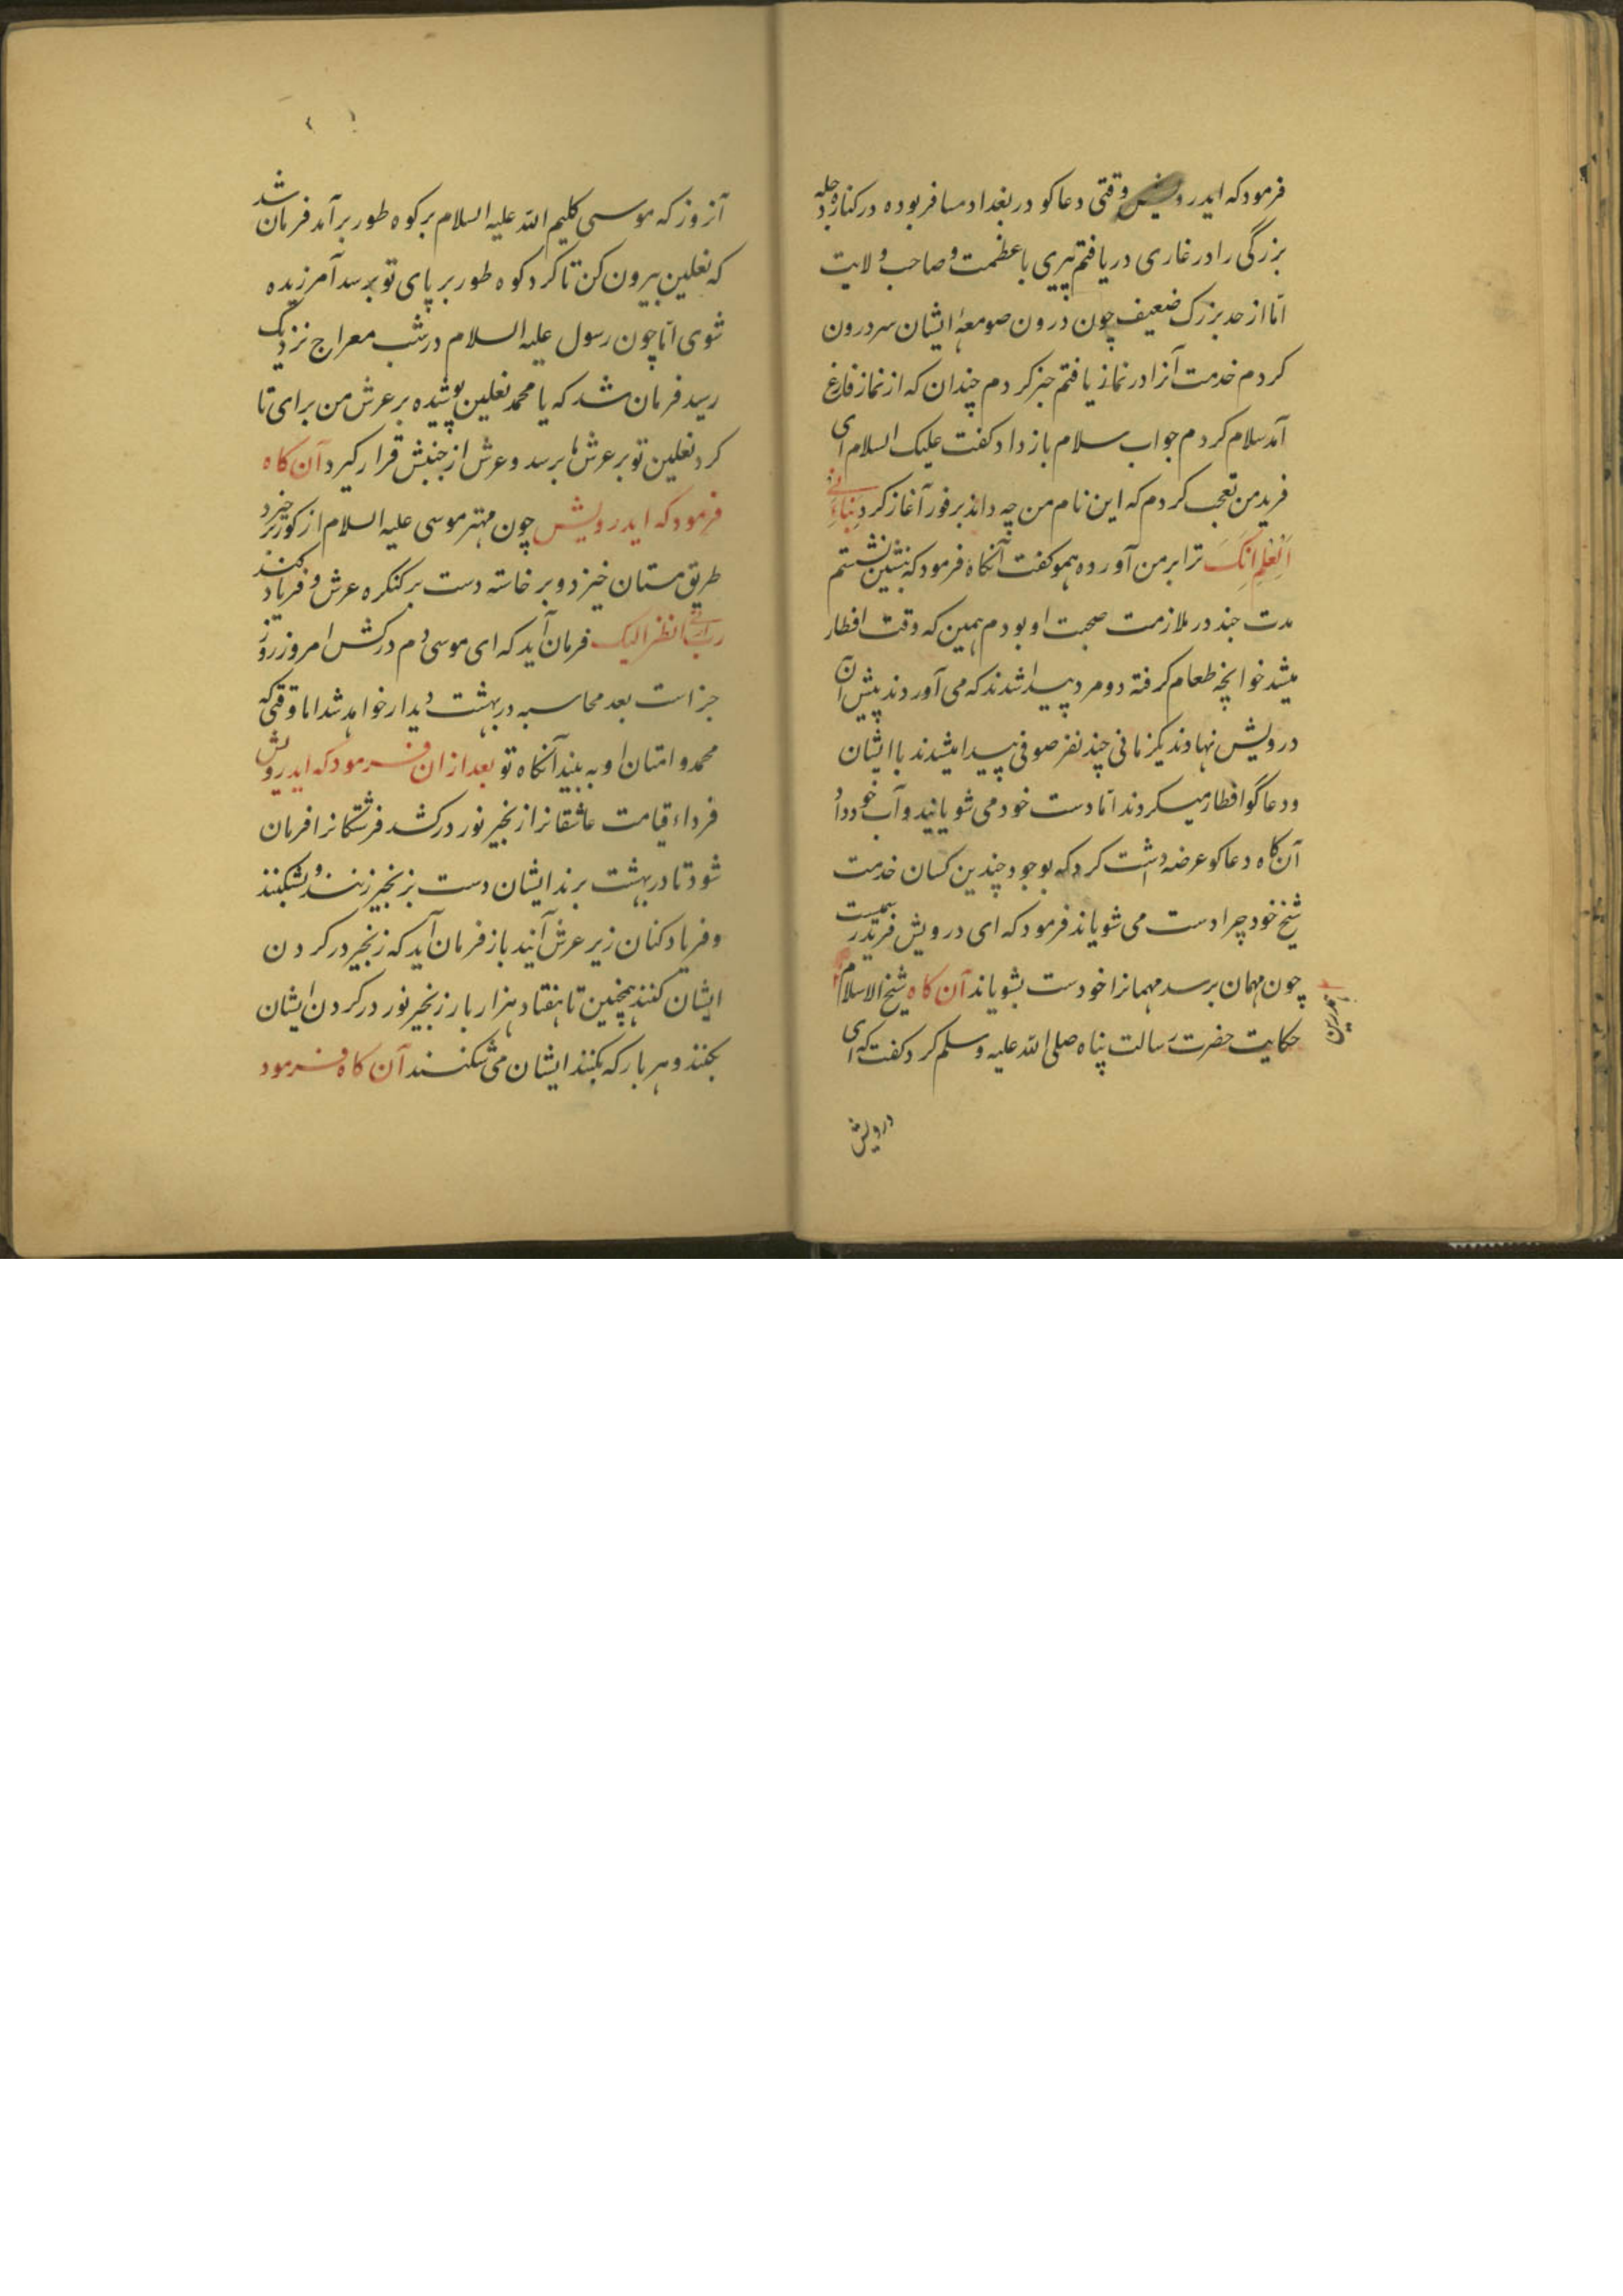 فرمود که ایدرویش وقتی دعاکو در بغداد مسافر بوده در کناره دجله
بزرگی را در غاری دریافتم پیری باعظمت و صاحب ولایت
اما از حد بزرک ضعیف چون درون صومعهٔ ایشان سر درون
کردم خدمت آنرا در نماز یافتم کردم چندان که از نماز فارغ
آمد سلام کردم جواب سلام باز داد کفت علیک السلام ای
فرید من تعجب کردم که این نام من چه داند بر فور آغاز کرد
ترا بر من آورده همو کفت آنکاه فرمود که بنشین نشستم
مدت چند در ملازمت صحبت او بودم همین که وقت افطار
میشد خوانچه طعام کرفته دو مرد پیدا شدند که می آوردند پیش آن
درویش نهادند یکزمانی چند نفر صوفی پیدا میشدند با ایشان
ودعاگو افطار میکردند اما دست خود می شویانید و آب خود داد
آن کاه دعاکو عرضه داشت کرد که بوجود چندین کسان خدمت
شیخ خود چرا دست می شویاند فرمود که ای درویش فرید رسمیست
چون مهمان برسد مهمانرا خود دست بشویاند آن کاه شیخ الاسلام
حکایت حضرت رسالت پناه صلی الله علیه وسلم کرد کفت که ای
درویش
آنروز که موسی کلیم الله علیه السلام بر کوه طور برآمد فرمان شد
که نعلین بیرون کن تا کرد کوه طور بر پای تو برسد آمرزیده
شوی اما چون رسول علیه السلام در شب معراج نزدیک
رسید فرمان شد که یا محمد نعلین پوشیده بر عرش من برای تا
کرد نعلین تو بر عرش ها برسد و عرش از جنبش قرار کیرد آن کاه
فرمود که ایدرویش چون مهتر موسی علیه السلام از کور بر خیزد
طریق مستان خیزد و برخاسته دست بر کنکره عرش و فریاد کند
رب ارنی انظر الیک فرمان آید که ای موسی دم در کش امروز روز
جزاست بعد محاسبه در بهشت دیدار خواهد شد اما وقتی که
محمد و امتان او به بیند آنکاه تو بعد ازان فرمود که ایدرویش
فرداء قیامت عاشقانرا زنجیر نور در کشند فرشتکانرا فرمان
شود تا در بهشت برند ایشان دست بزنجیر زنند و بشکنند
و فریاد کنان زیر عرش آیند باز فرمان آید که زنجیر در کردن
ایشان کنند همچنین تا هفتاد هزار بار زنجیر نور در کردن ایشان
بکنند و هر بار که بکنند ایشان می شکنند آن کاه فرمود